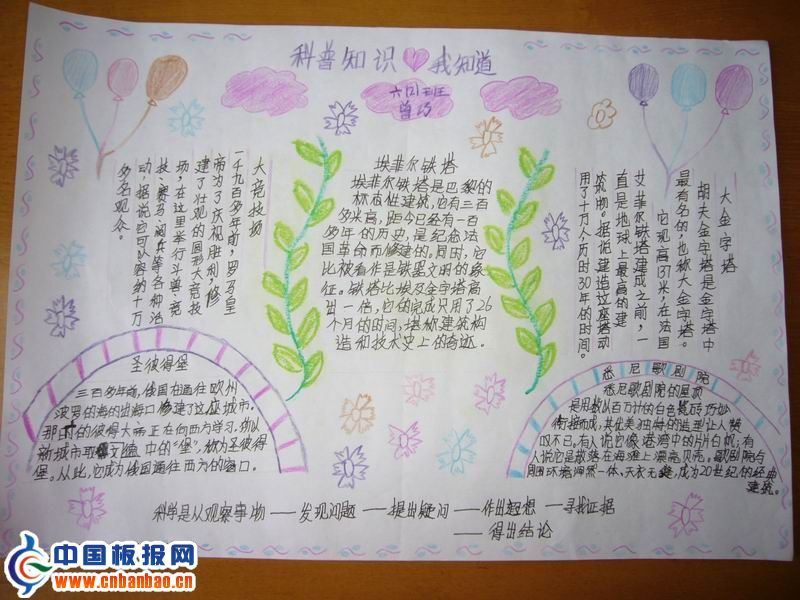 科普知识 我知道
六四班
曾巧
大竞技场
一千九百多年前,罗马皇
帝为了庆祝胜利,修
建了壮观的圆形大竞技
场,在这里举行斗兽、竞
技、赛马、阅兵等各种活
动,据说它可以容纳十万
多名观众。
埃菲尔铁塔
埃菲尔铁塔是巴黎的
标志性建筑,它有三百
多米高,距今已经有一百
多年的历史,是纪念法
国革命而修建的。同时,它
比被看作是铁垩文明的象
征。铁塔比埃及金字塔高
出一倍,它的完成只用了26
个月的时间,堪称建筑构
造和技术史上的奇迹。
大金字塔
胡夫金字塔是金字塔中
最有名的,也称大金字塔。
它现高137米,在法国
艾菲尔铁塔建成之前,一
直是地球上最高的建
筑物。据说建造这座塔动
用了十万个人历时30年的时间。
圣彼得堡
三百多年前,俄国在通往欧州
波罗的海的出海口修建了这座城市。
那时的彼得大帝正在向西方学习,所以
新城市取 文 中的“堡”,称为圣彼得
堡。从此,它成为俄国通往西方的窗口。
悉尼歌剧院
悉尼歌剧院的屋顶
是用数以百万计的白色瓷砖巧妙
衔接而成,其优美独特的造型让人赞
叹不已,有人说它像港湾中的片片白帆;有
人说它是散落在海滩上漂亮贝壳。歌剧院与
周围环境浑然一体,天衣无缝,成为20世纪的经典
建筑。
科学是从观察事物——发现问题——提出疑问——作出超想——寻找证据
——得出结论
中国板报网
www.cnbanbao.cn